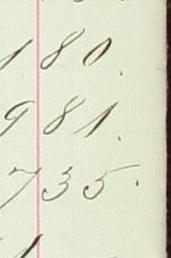 180.
981.
735.